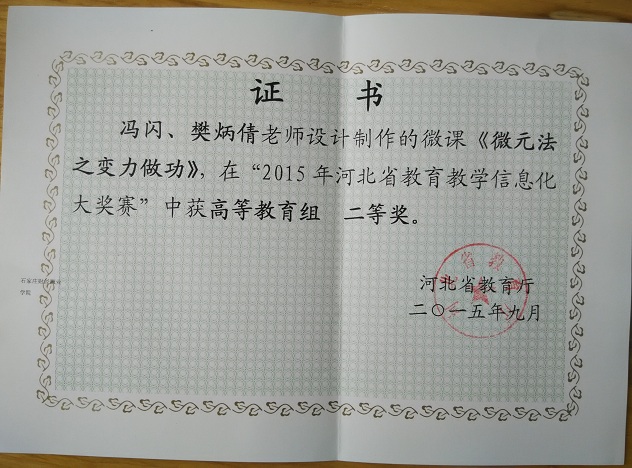 证 书
冯闪、樊炳倩老师设计制作的微课《微元法
之变力做功》，在“2015年河北省教育教学信息化
大奖赛”中获高等教育组 二等奖。
河北省教育厅
二〇一五年九月
学院